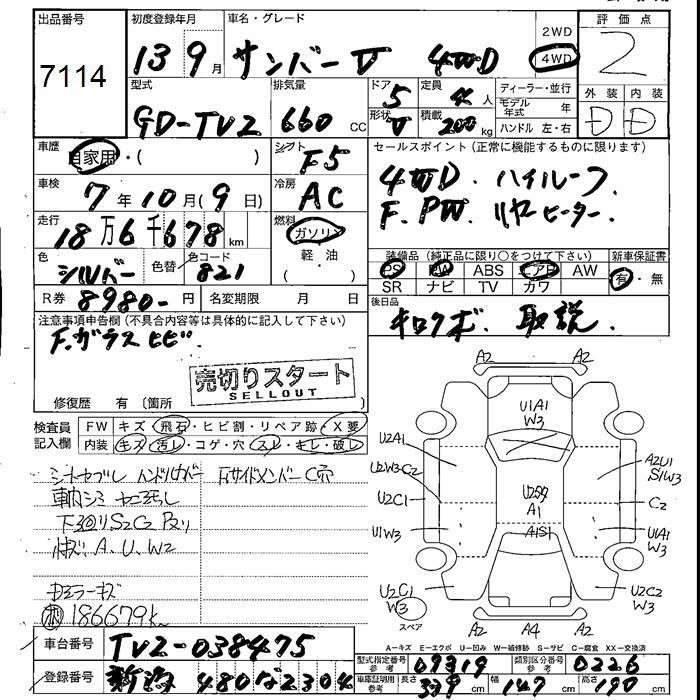 出品番号
7114
初度登録年月
13 9月
車名・グレード
サンバーV 4WD
2WD
4WD
評価点
2
型式
GD-TV2
排気量
660 CC
ドア
5
形状
V
定員
4人
積載
200kg
ディーラー・並行
モデル年式 年
ハンドル 左・右
外装 内装
D D
車歴
自家用・( )
シフト
F5
車検
7年10月(9日)
冷房
AC
走行
18万6千678km
燃料
ガソリン
軽・油
色
シルバー
色替
色コード
821
R券 8980-円
名変期限 月 日
セールスポイント(正常に機能するものに限ります)
4WD. ハイルーフ
F. PW. リヤヒーター.
装備品(純正品に限り○をつけて下さい)
新車保証書
PS PW ABS エアB AW
SR ナビ TV カワ
有・無
後日品
キロクボ. 取説.
注意事項申告欄(不具合内容等は具体的に記入して下さい)
F.ガラスヒビ.
売切りスタート
SELLOUT
修復歴 有〔箇所 〕
検査員記入欄
FW キズ・飛石・ヒビ割・リペア跡・X要
内装 キズ・汚し・コゲ・穴・スレ・キレ・破し
下3回りS2C2
A、U、W2
186679k
車台番号
TV2-038475
登録番号
新潟 480な2304
A2 A2
U1A1
W3
U2A1
U2W3C2
U2C1
U1W3
U2C1
W3
A2U1
S1W3
C2
U1A1
W3
U2C2
W3
A1
A1S1
スペア
A2 A4 A2
A-キズ E-エクボ U-凹み W-補修跡 S-サビ C-腐食 XX-交換済
型式指定番号
参考
07319
類別区分番号
参考
0226
車庫証明用
参考
長さ 339cm
幅 147cm
高さ 190cm